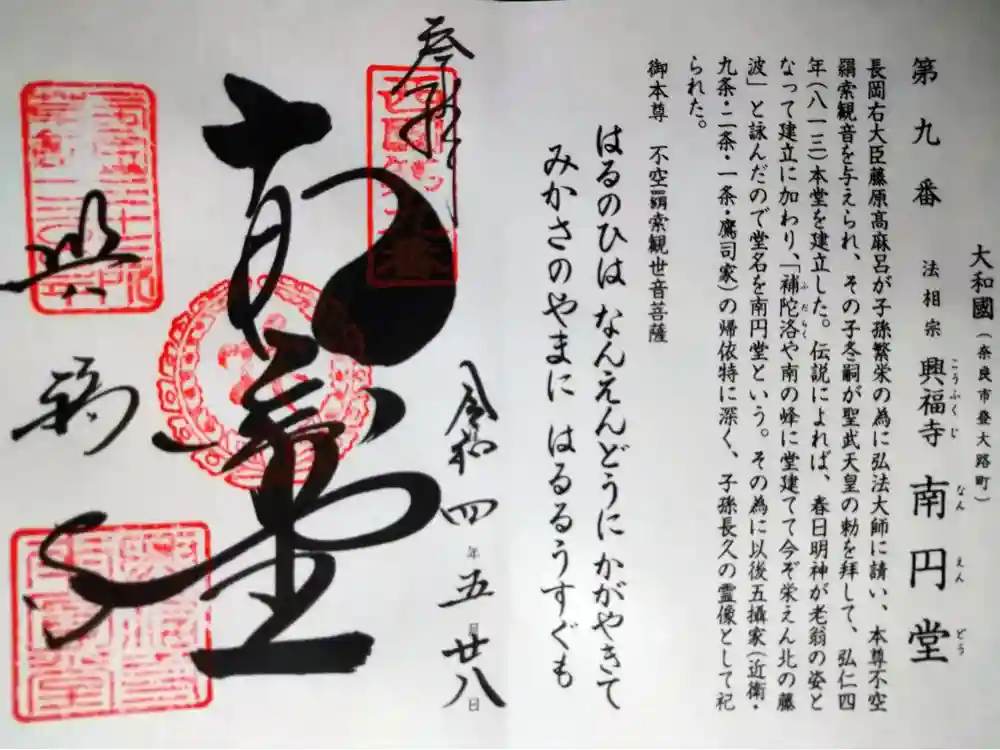 大和國(奈良市登大路町)
第九番 法相宗 興福寺 南円堂
こうふくじ なんえんどう
長岡右大臣藤原高麻呂が子孫繁栄の為に弘法大師に請い、本尊不空
羂索観音を与えられ、その子冬嗣が聖武天皇の勅を拝して、弘仁四
年(八一三)本堂を建立した。伝説によれば、春日明神が老翁の姿と
なって建立に加わり、「補陀洛や南の峰に堂建てて今ぞ栄えん北の藤
ふだらく
波」と詠んだので堂名を南円堂という。その為に以後五攝家(近衛・
九条・二条・一条・鷹司家)の帰依特に深く、子孫長久の霊像として祀
られた。
御本尊 不空羂索観世音菩薩
はるのひは なんえんどうに かがやきて
みかさのやまに はるるうすぐも
奉拝
令和四年五月廿八日
興福寺